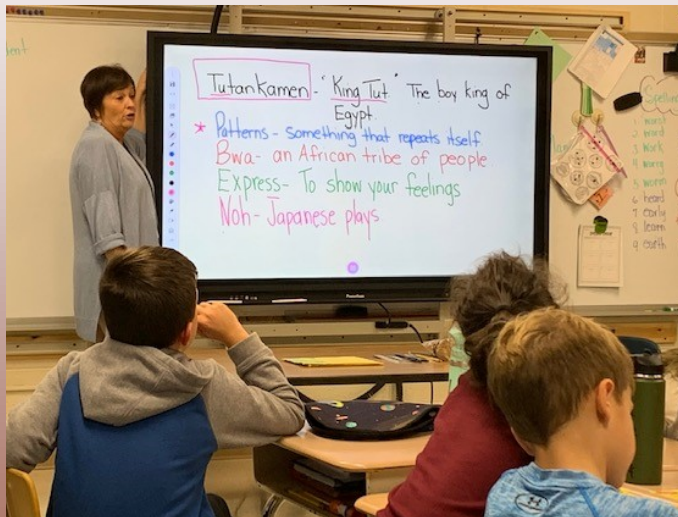 Tutankamen - "King Tut" The boy king of
Egypt.
* Patterns - something that repeats itself.
Bwa- an African tribe of people
Express- To show your feelings
Noh- Japanese plays
Spelling
1. worst
2. word
3. work
4. worry
5. worm
6. heard
7. early
8. learn
9. earth